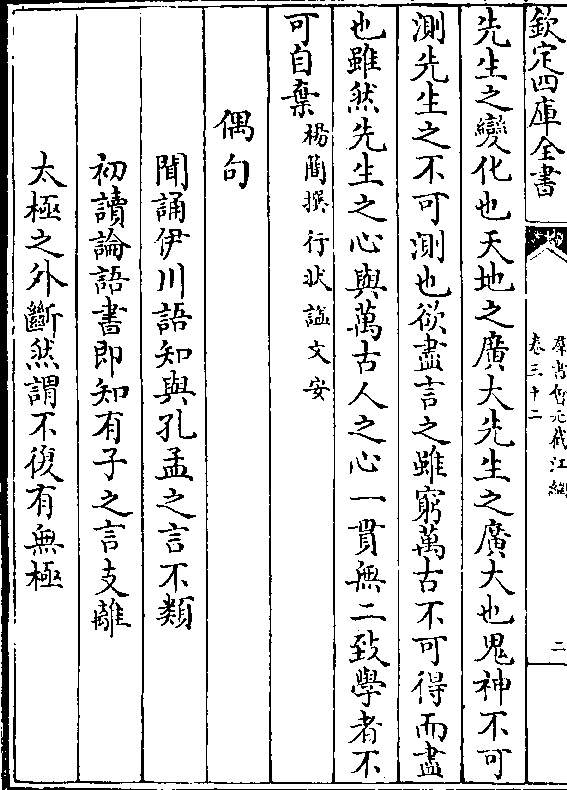 欽定四庫全書
羣書會元截江網
卷三十二
二
先生之變化也天地之廣大先生之廣大也鬼神不可
測先生之不可測也欲盡言之雖窮萬古不可得而盡
也雖然先生之心與萬古人之心一貫無二致學者不
可自棄 楊簡撰行狀諡文安
偶句
聞誦伊川語知與孔孟之言不類
初讀論語書即知有子之言支離
太極之外斷然謂不復有無極